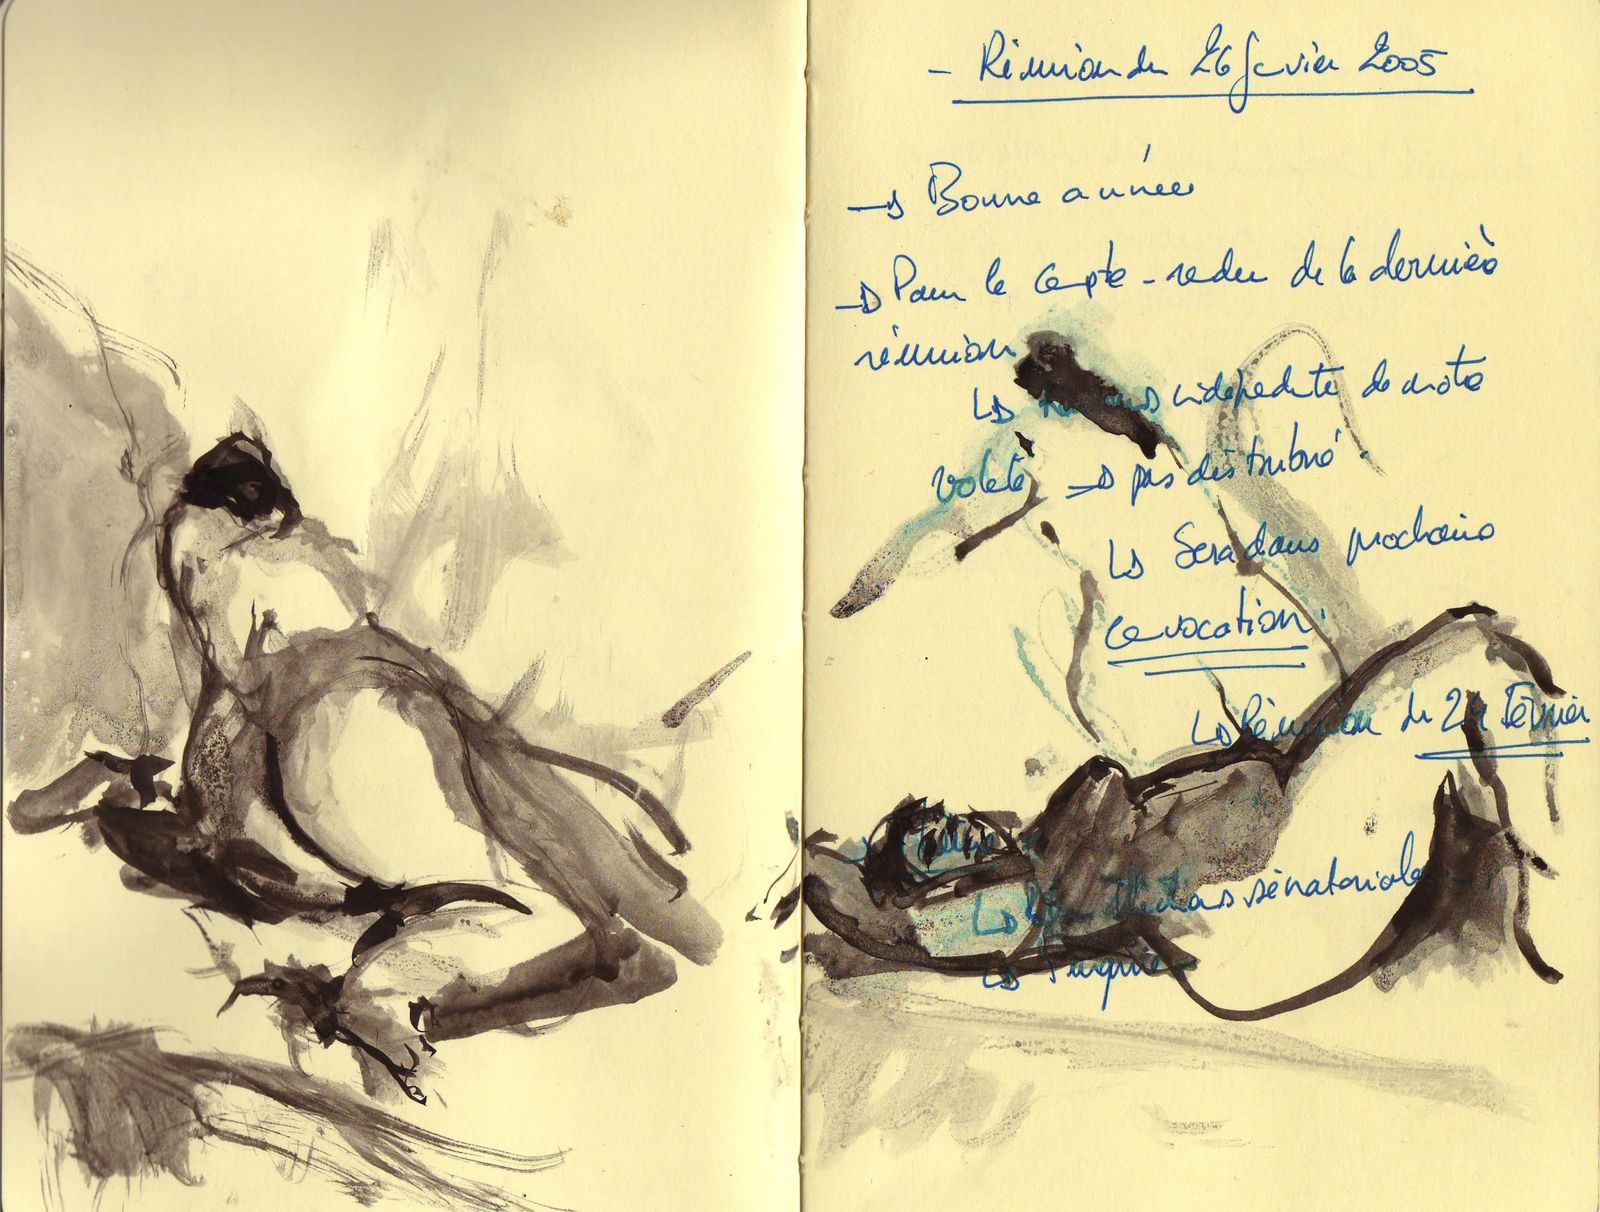 - Réunion du 26 Janvier 2005
→ Bonne année
→ Pour le compte-rendu de la dernière
réunion
↳ indépendante de notre
volonté → pas distribué.
↳ Sera dans prochaine
convocation.
↳ Réunion du 24 Février
→
↳ élections sénatoriales
↳